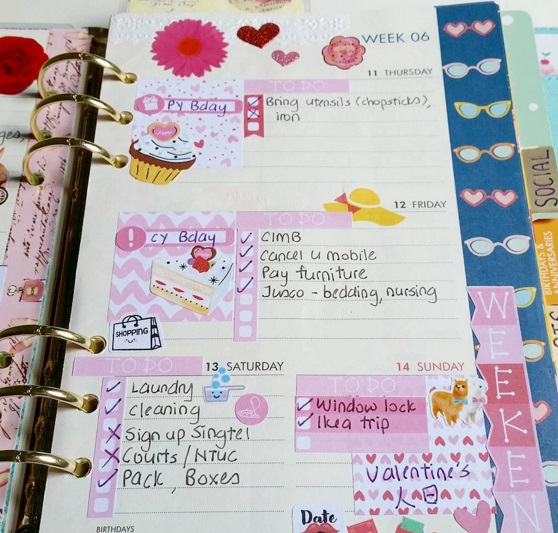 WEEK 06
11 THURSDAY
TO DO
PY Bday
Bring utensils (chopsticks),
iron
12 FRIDAY
TO DO
CY Bday
CIMB
Cancel U mobile
Pay furniture
Jusco - bedding, nursing
SHOPPING
TO DO
13 SATURDAY
Laundry
Cleaning
Sign up Singtel
Courts / NTUC
Pack, Boxes
14 SUNDAY
TO DO
Window lock
Ikea trip
Valentine's
人日
Date
BIRTHDAYS
WEEKEN
SOCIAL
BIRTHDAYS &
ANNIVERSARIES